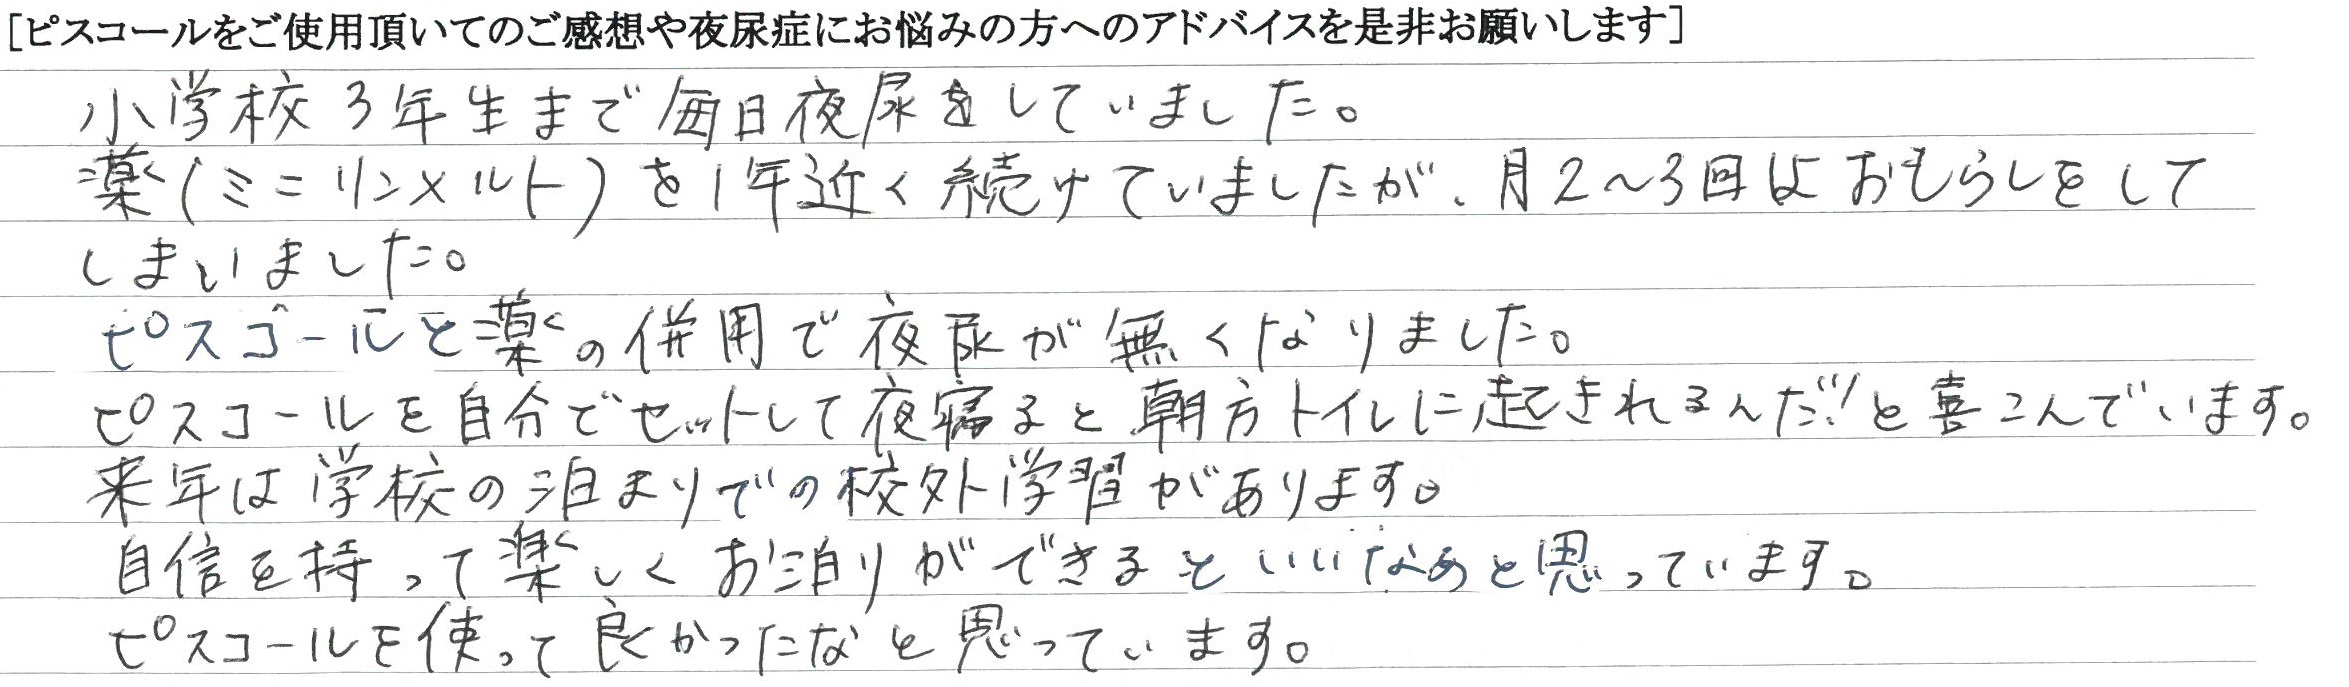 [ピスコールをご使用頂いてのご感想や夜尿症にお悩みの方へのアドバイスを是非お願いします]
小学校3年生まで毎日夜尿をしていました。
薬(ミニリンメルト)を1年近く続けていましたが、月2〜3回はおもらしをして
しまいました。
ピスコールと薬の併用で夜尿が無くなりました。
ピスコールを自分でセットして夜寝ると朝方トイレに起きれるんだ!!と喜こんでいます。
来年は学校の泊まりでの校外学習があります。
自信を持って楽しくお泊りができるといいなぁと思っています。
ピスコールを使って良かったなと思っています。